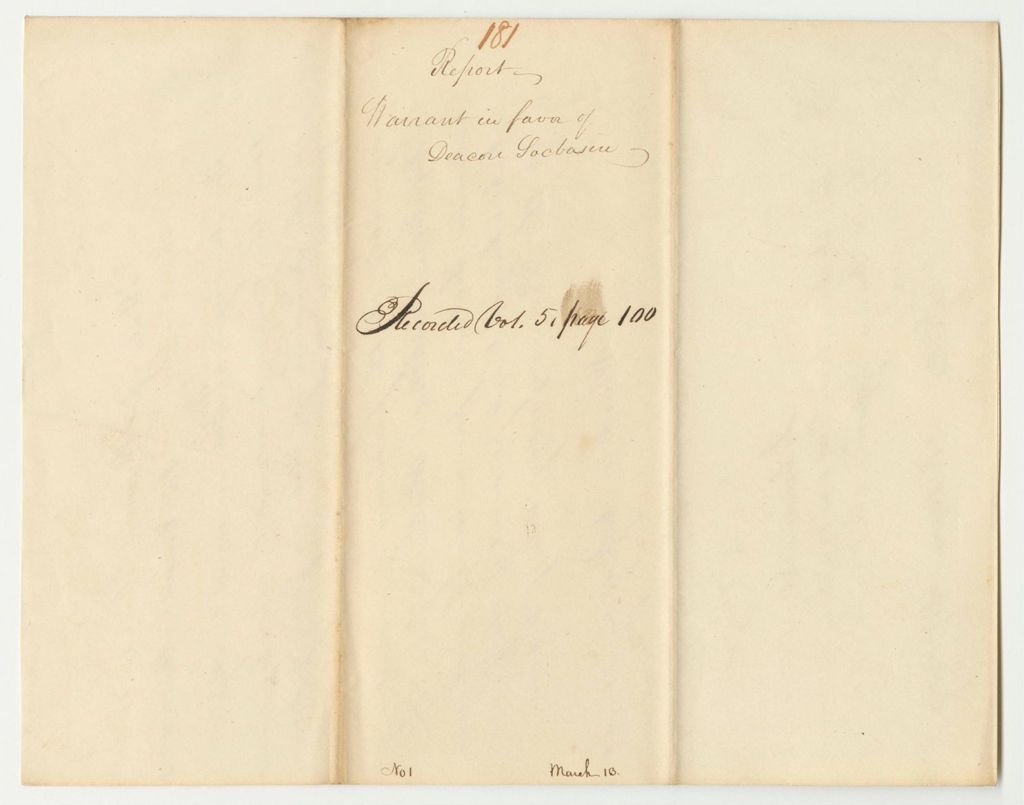 181
Report
Warrant in favor of
Deacon Socbasin
Recorded Vol. 5, page 100
No 1
March 13.